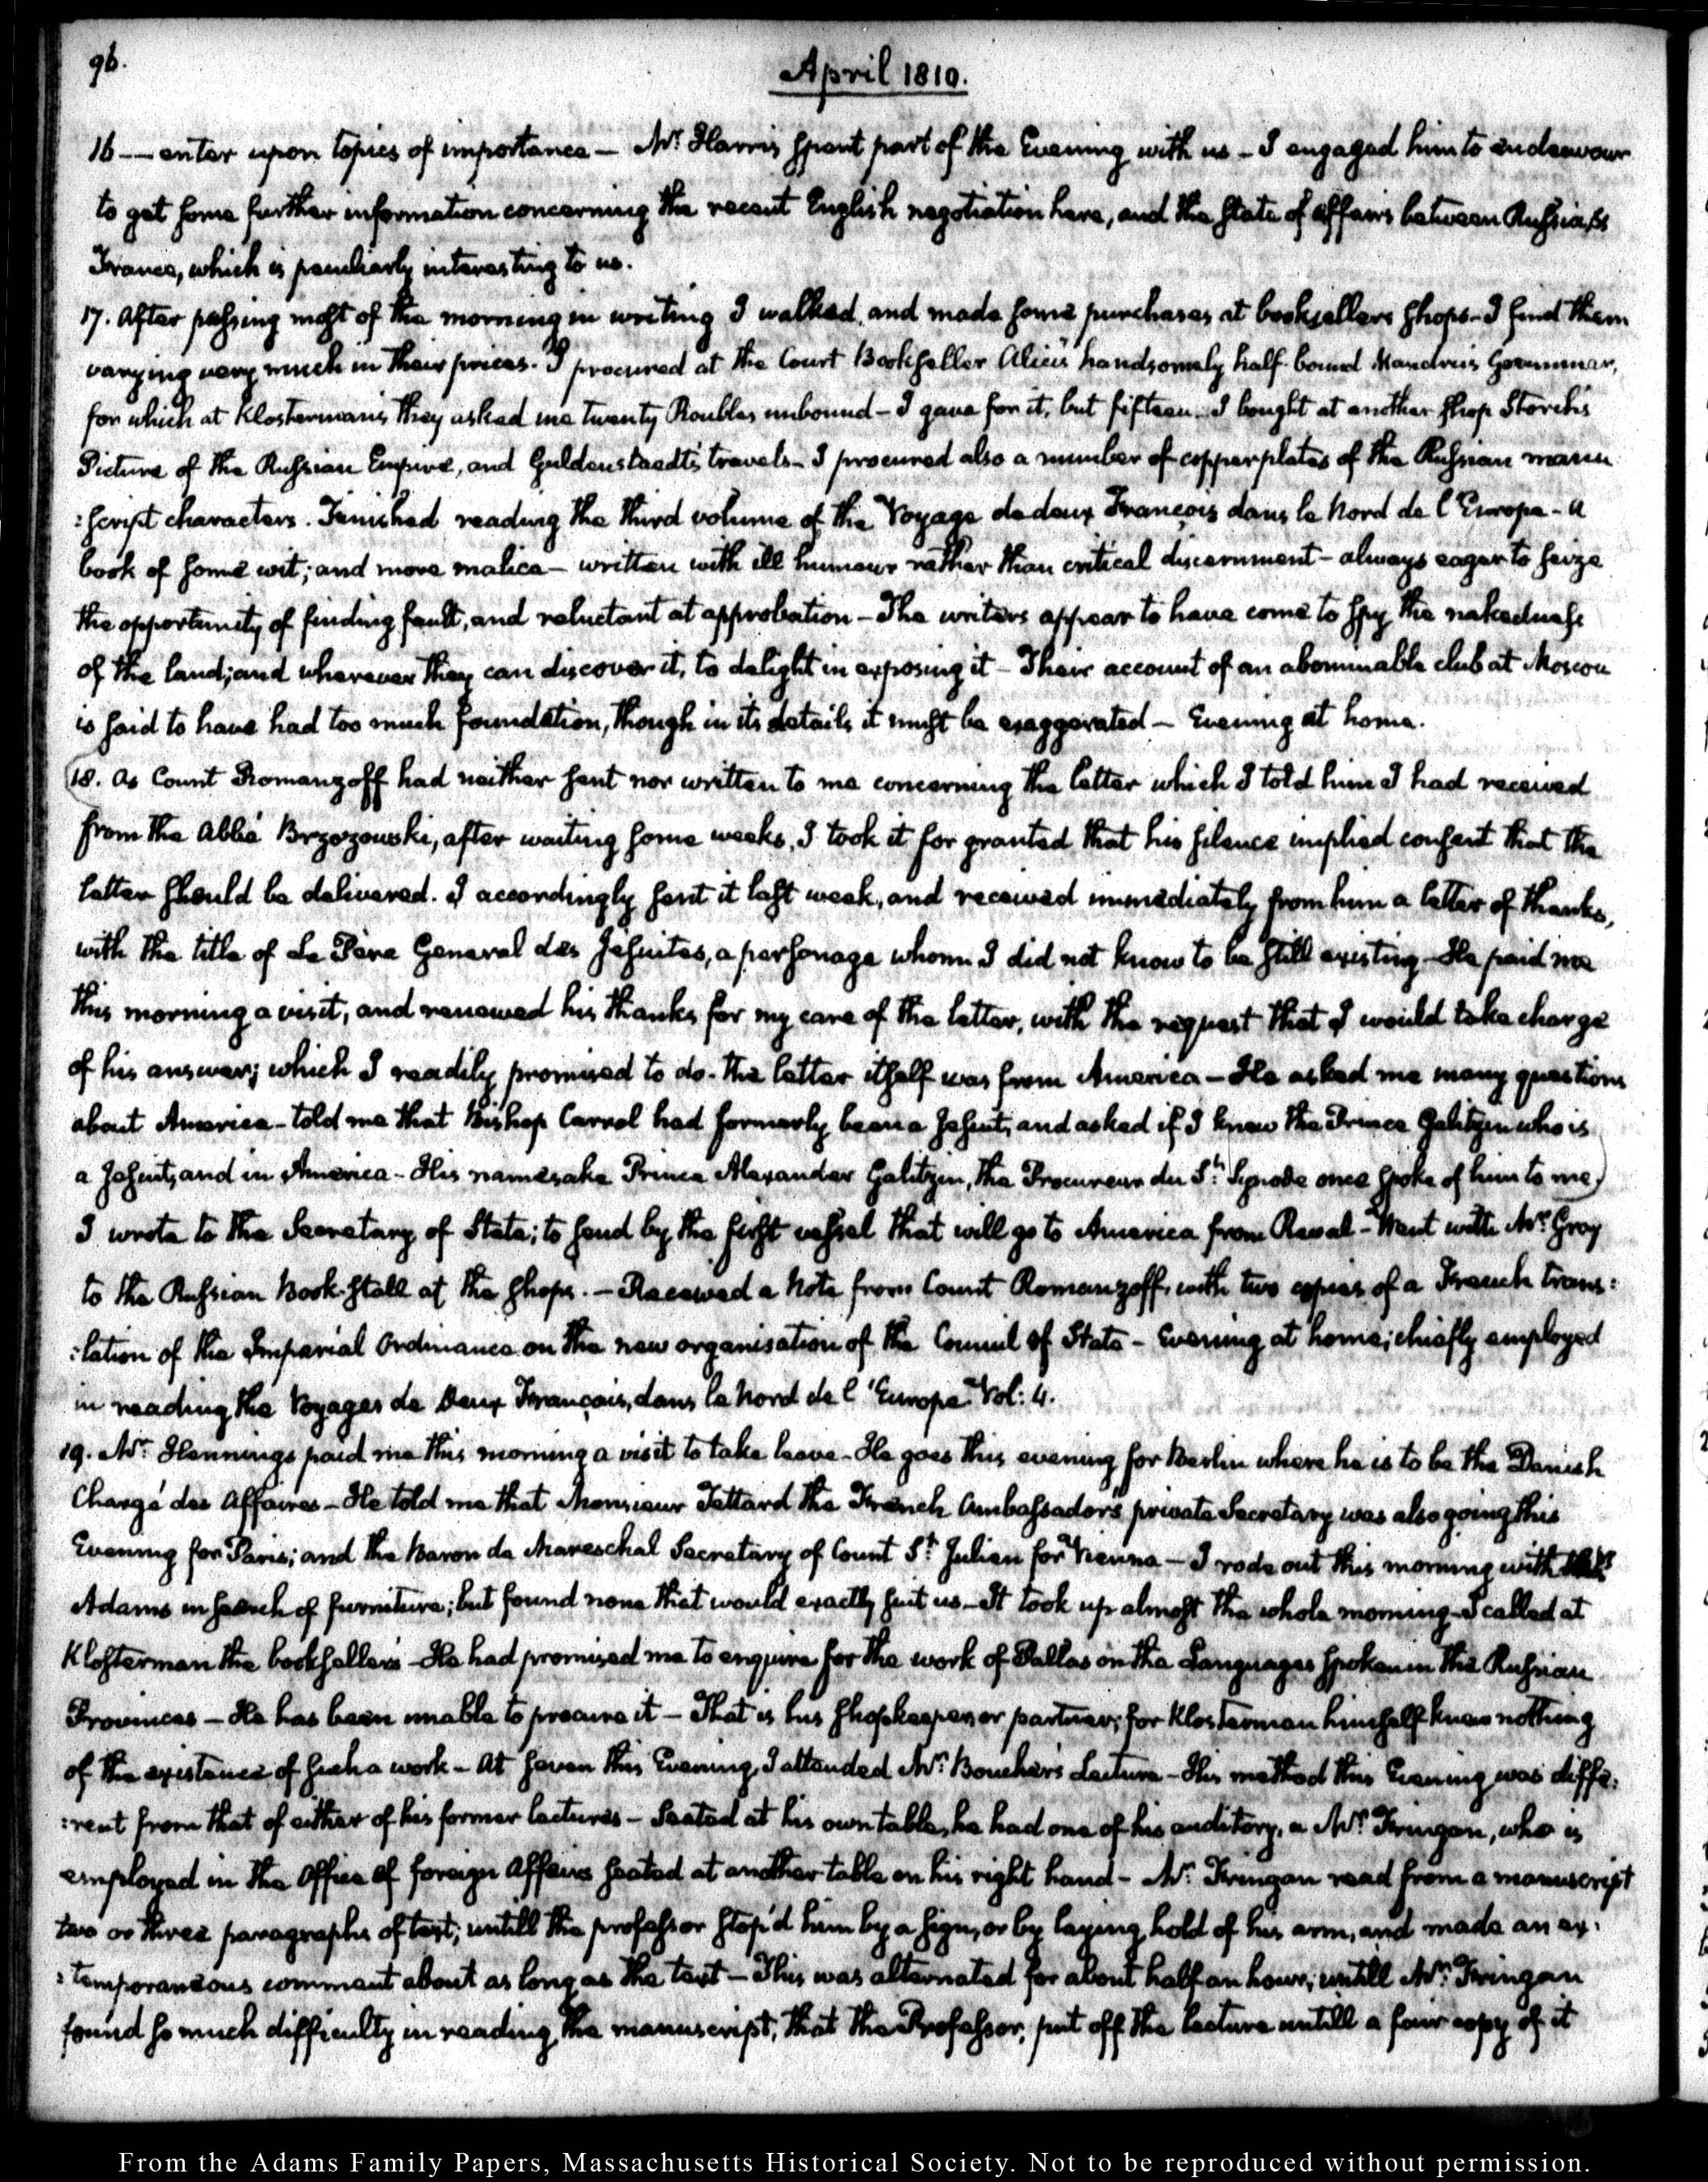 96.
April 1810.
16 — enter upon topics of importance — Mr. Harris spent part of the Evening with us — I engaged him to endeavour
to get some further information concerning the recent English negotiation here, and the state of affairs between Russia, &
France, which is peculiarly interesting to us.
17. After passing most of the morning in writing I walked, and made some purchases at booksellers shops — I find them
varying very much in their prices. I procured at the Court Bookseller Alici's handsomely half-bound Maudru's Grammar,
for which at Klosterman's they asked me twenty Roubles unbound — I gave for it, but fifteen. I bought at another shop Storch's
Picture of the Russian Empire, and Guldenstaedt's travels — I procured also a number of copperplates of the Russian manu
:script characters. Finished reading the third volume of the Voyage de deux François dans le Nord de l'Europe — a
book of some wit; and more malice — written with ill humour rather than critical discernment — always eager to seize
the opportunity of finding fault, and reluctant at approbation — The writers appear to have come to spy the nakedness
of the land; and wherever they can discover it, to delight in exposing it — Their account of an abominable club at Moscou
is said to have had too much foundation, though in its details it must be exaggerated — Evening at home.
18. As Count Romanzoff had neither sent nor written to me concerning the letter which I told him I had received
from the Abbé Brzozowski, after waiting some weeks, I took it for granted that his silence implied consent that the
letter should be delivered. I accordingly sent it last week, and received immediately from him a letter of thanks,
with the title of Le Père General des Jesuites, a personage whom I did not know to be still existing — He paid me
this morning a visit, and renewed his thanks for my care of the letter, with the request that I would take charge
of his answer; which I readily promised to do. The letter itself was from America — He asked me many questions
about America — told me that Bishop Carrol had formerly been a Jesuit, and asked if I knew the Prince Galitzin who is
a Jesuit, and in America — His namesake Prince Alexander Galitzin, the Procureur du St. Synode once spoke of him to me)
I wrote to the Secretary of State; to send by the first vessel that will go to America from Reval — Went with Mr. Gray
to the Russian Book-stall at the shops. — Received a Note from Count Romanzoff, with two copies of a French trans:
:lation of the Imperial Ordinance on the new organisation of the Council of State — Evening at home; chiefly employed
in reading the Voyages de Deux Français, dans le Nord de l'Europe Vol: 4.
19. Mr. Hennings paid me this morning a visit to take leave. He goes this evening for Berlin where he is to be the Danish
Chargé des Affaires — He told me that Monsieur Tattard the French Ambassador's private Secretary was also going this
Evening for Paris; and the Baron de Mareschal Secretary of Count St. Julien for Vienna — I rode out this morning with Mrs.
Adams in search of furniture; but found none that would exactly suit us — It took up almost the whole morning — I called at
Klosterman the bookseller's — He had promised me to enquire for the work of Pallas on the Languages spoken in the Russian
Provinces — He has been unable to procure it — That is his shopkeeper, or partner; for Klosterman himself knew nothing
of the existence of such a work — At seven this Evening, I attended Mr. Boucher's Lecture — His method this Evening was diffe:
:rent from that of either of his former lectures — Seated at his own table, he had one of his auditory, a Mr. Fringan, who is
employed in the Office of foreign Affairs seated at another table on his right hand — Mr. Fringan read from a manuscript
two or three paragraphs of text; untill the professor stop'd him by a sign, or by laying hold of his arm, and made an ex:
:temporaneous comment about as long as the text — This was alternated for about half an hour; untill Mr. Fringan
found so much difficulty in reading the manuscript, that the Professor, put off the lecture untill a fair copy of it
From the Adams Family Papers, Massachusetts Historical Society. Not to be reproduced without permission.